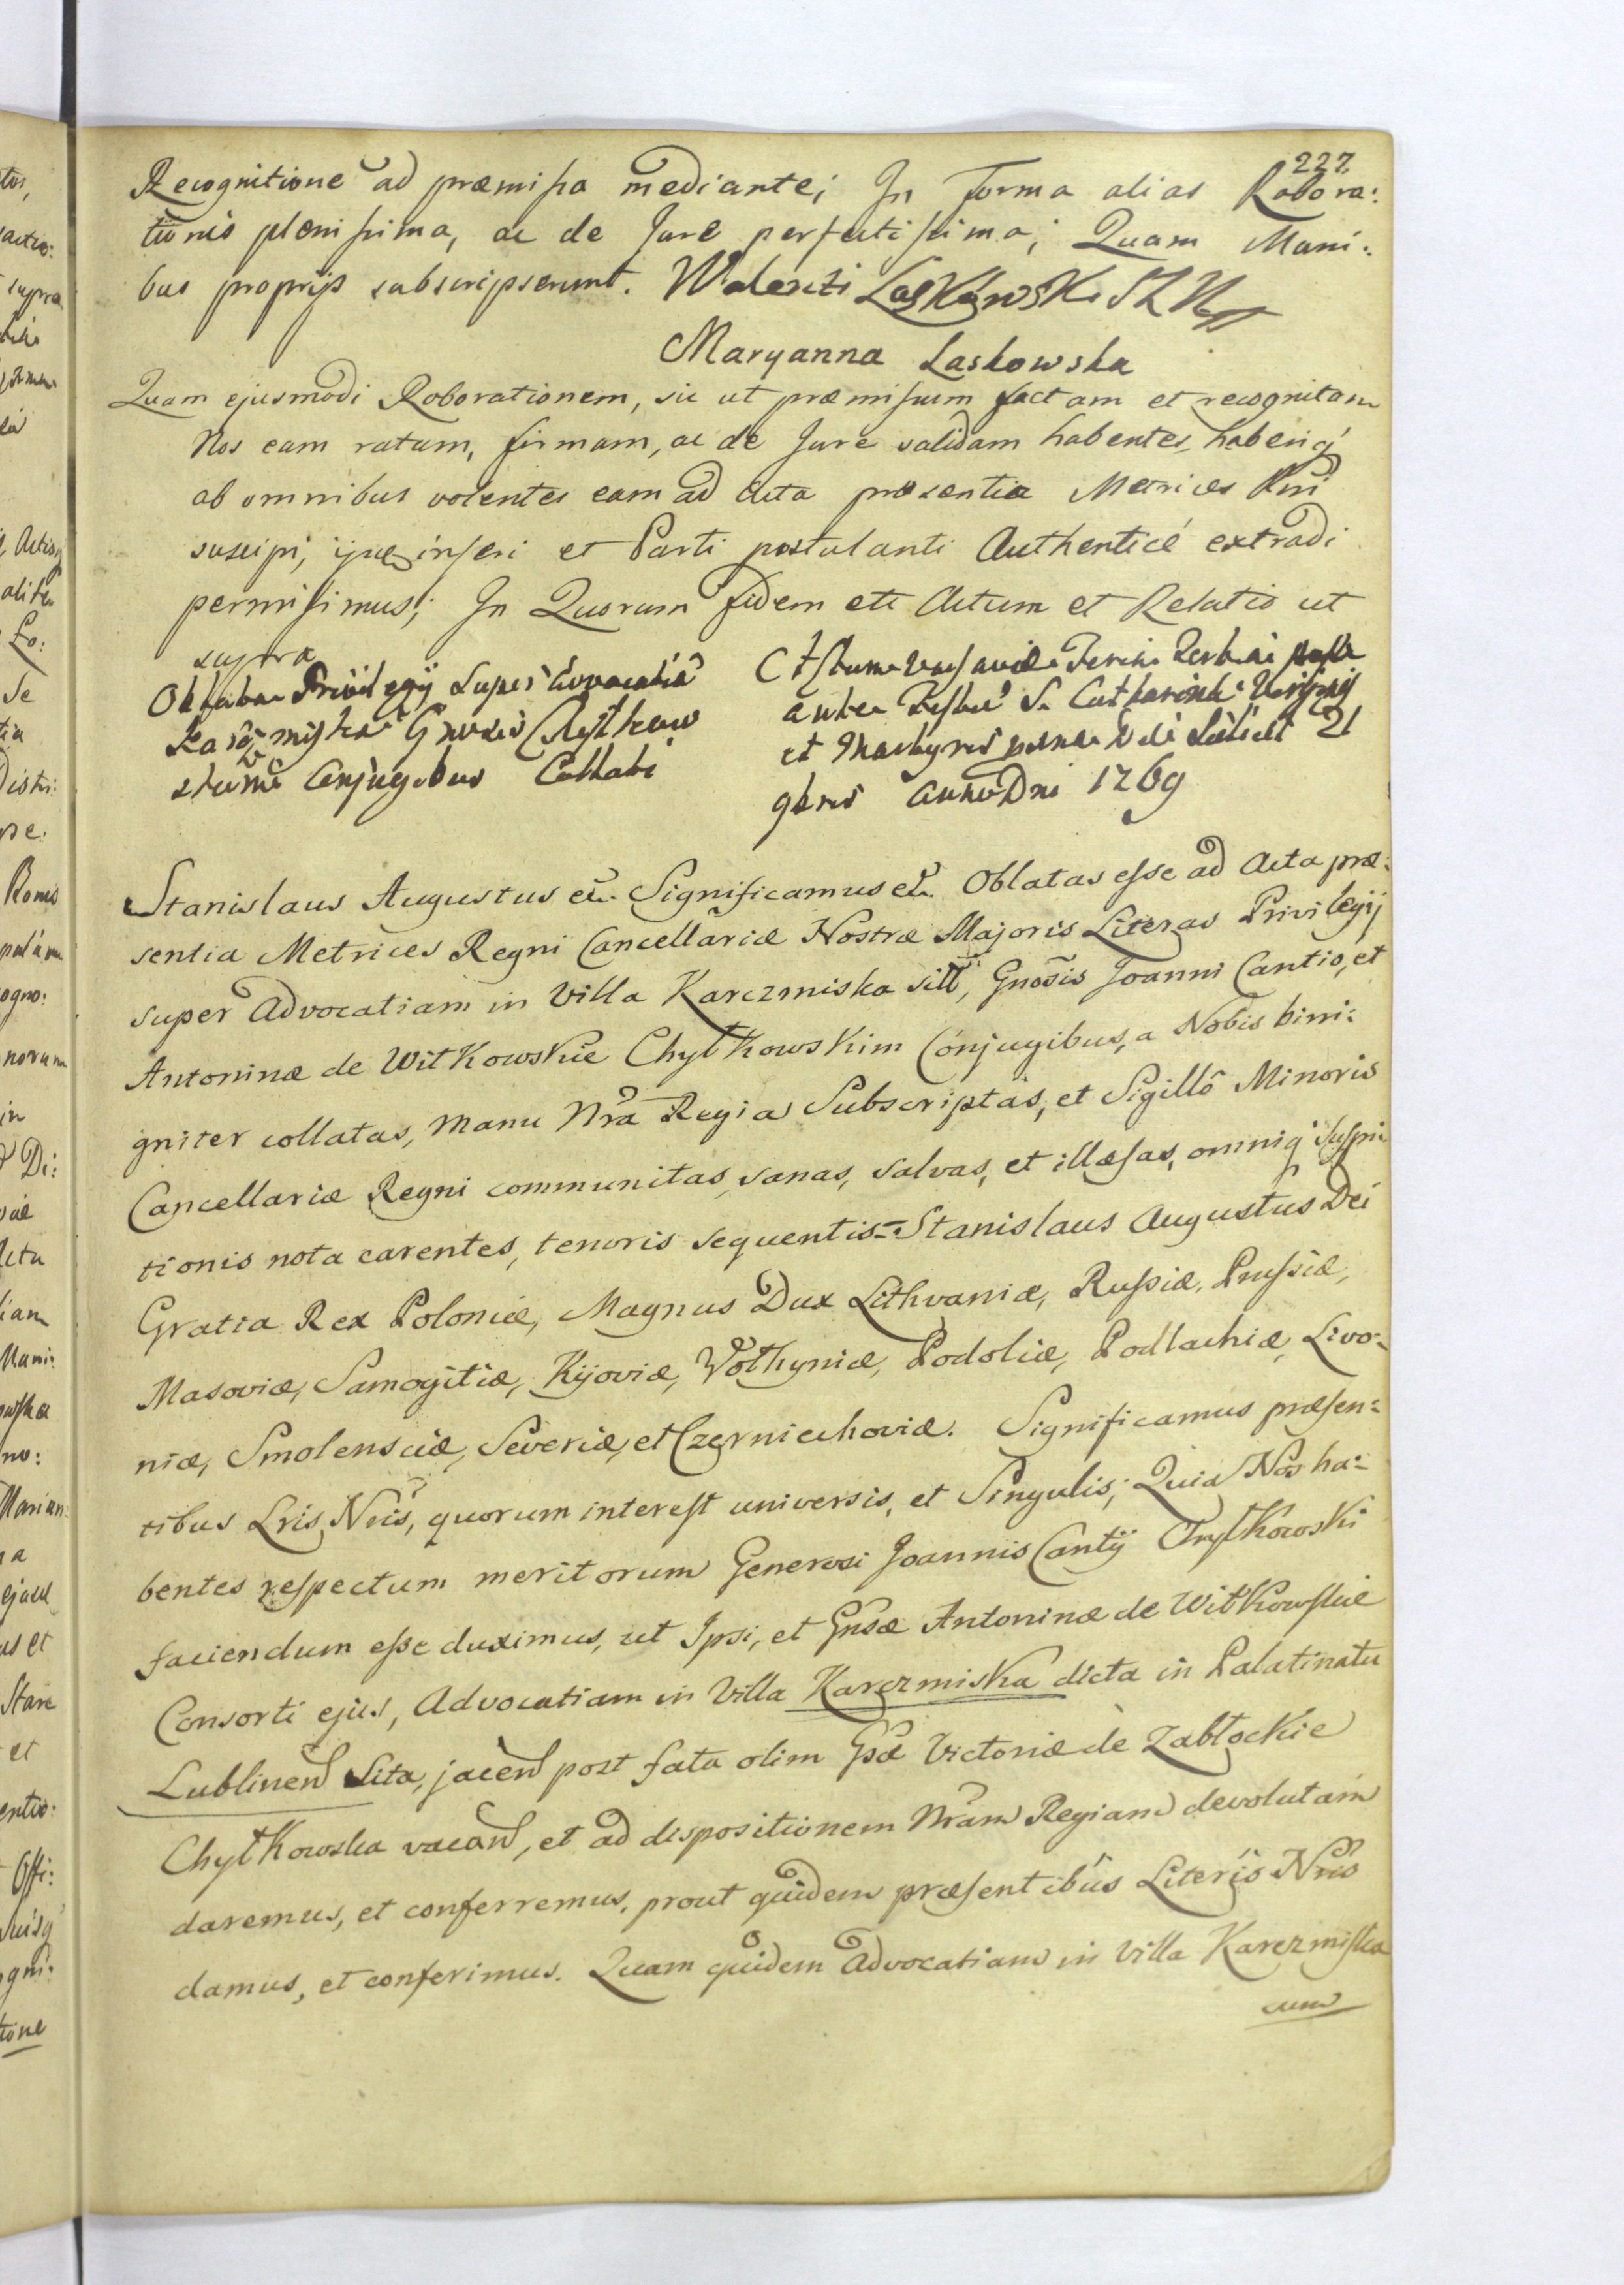 227.
Recognitione ad præmissa mediante; In Forma alias Robora:
tionis plenissima, ac de Jure perfectissima; Quam Mani:
bus proprijs subscripserunt. Walenti Laskowski
Maryanna Laskowska
Quam ejusmodi Roborationem, sic ut præmissum factam et recognitam
Nos eam ratam, firmam, ac de Jure validam habentes, haberiq́
ab omnibus volentes eam ad Acta præsentia Metrices Rni
suscipi, ijsq inseri et Parti postulanti Authenticé extradi
permisimus; In Quorum fidem etc Actum et Relatio ut
supra
Oblata Privilegij super Advocatiã
Karczmiska Gnosis Chyłkow
skim Conjugibus Collati
Actum Varsaviæ Feria Tertia
ante Festũ S. Catharinæ Virginis
et Martyris die 21
9bris Anno Dni 1769
Stanislaus Augustus etc. Significamus etc. Oblatas esse ad Acta præ:
sentia Metrices Regni Cancellariæ Nostræ Majoris Literas Privilegij
super Advocatiam in Villa Karczmiska sitt, Gnosis Joanni Cantio, et
Antoninæ de Witkowskie Chyłkowskim Conjugibus, a Nobis beni:
gniter collatas, Manu Nra Regia Subscriptas, et Sigillô Minoris
Cancellariæ Regni communitas, sanas, salvas, et illæsas, omniq́ suspi:
tionis nota carentes, tenoris sequentis = Stanislaus Augustus Dei
Gratia Rex Poloniæ, Magnus Dux Lithvaniæ, Russiæ, Prussiæ,
Masoviæ, Samogitiæ, Kijoviæ, Wołhyniæ, Podoliæ, Podlachiæ, Livo:
niæ, Smolensciæ, Severiæ, et Czerniechoviæ. Significamus præsen:
tibus Lris Nris, quorum interest universis, et Singulis; Quia Nos ha:
bentes respectum meritorum Generosi Joannis Cantij Chyłkowski
faciendum esse duximus, ut Ipsi, et Gnsæ Antoninæ de Witkowskie
Consorti ejus, Advocatiam in Villa Karczmiska dicta in Palatinatu
Lublinen Sita, jacen post fata olim Gsæ Victoriæ de Zabłockie
Chyłkowska vacan, et ad dispositionem Nram Regiam devolutam
daremus, et conferremus, prout quidem præsentibus Literis Nris
damus, et conferimus. Quam quidem Advocatiam in Villa Karczmiska
cum